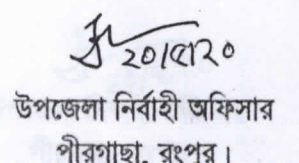 ২০।৫।২০
উপজেলা নির্বাহী অফিসার
পীরগাছা, রংপুর।